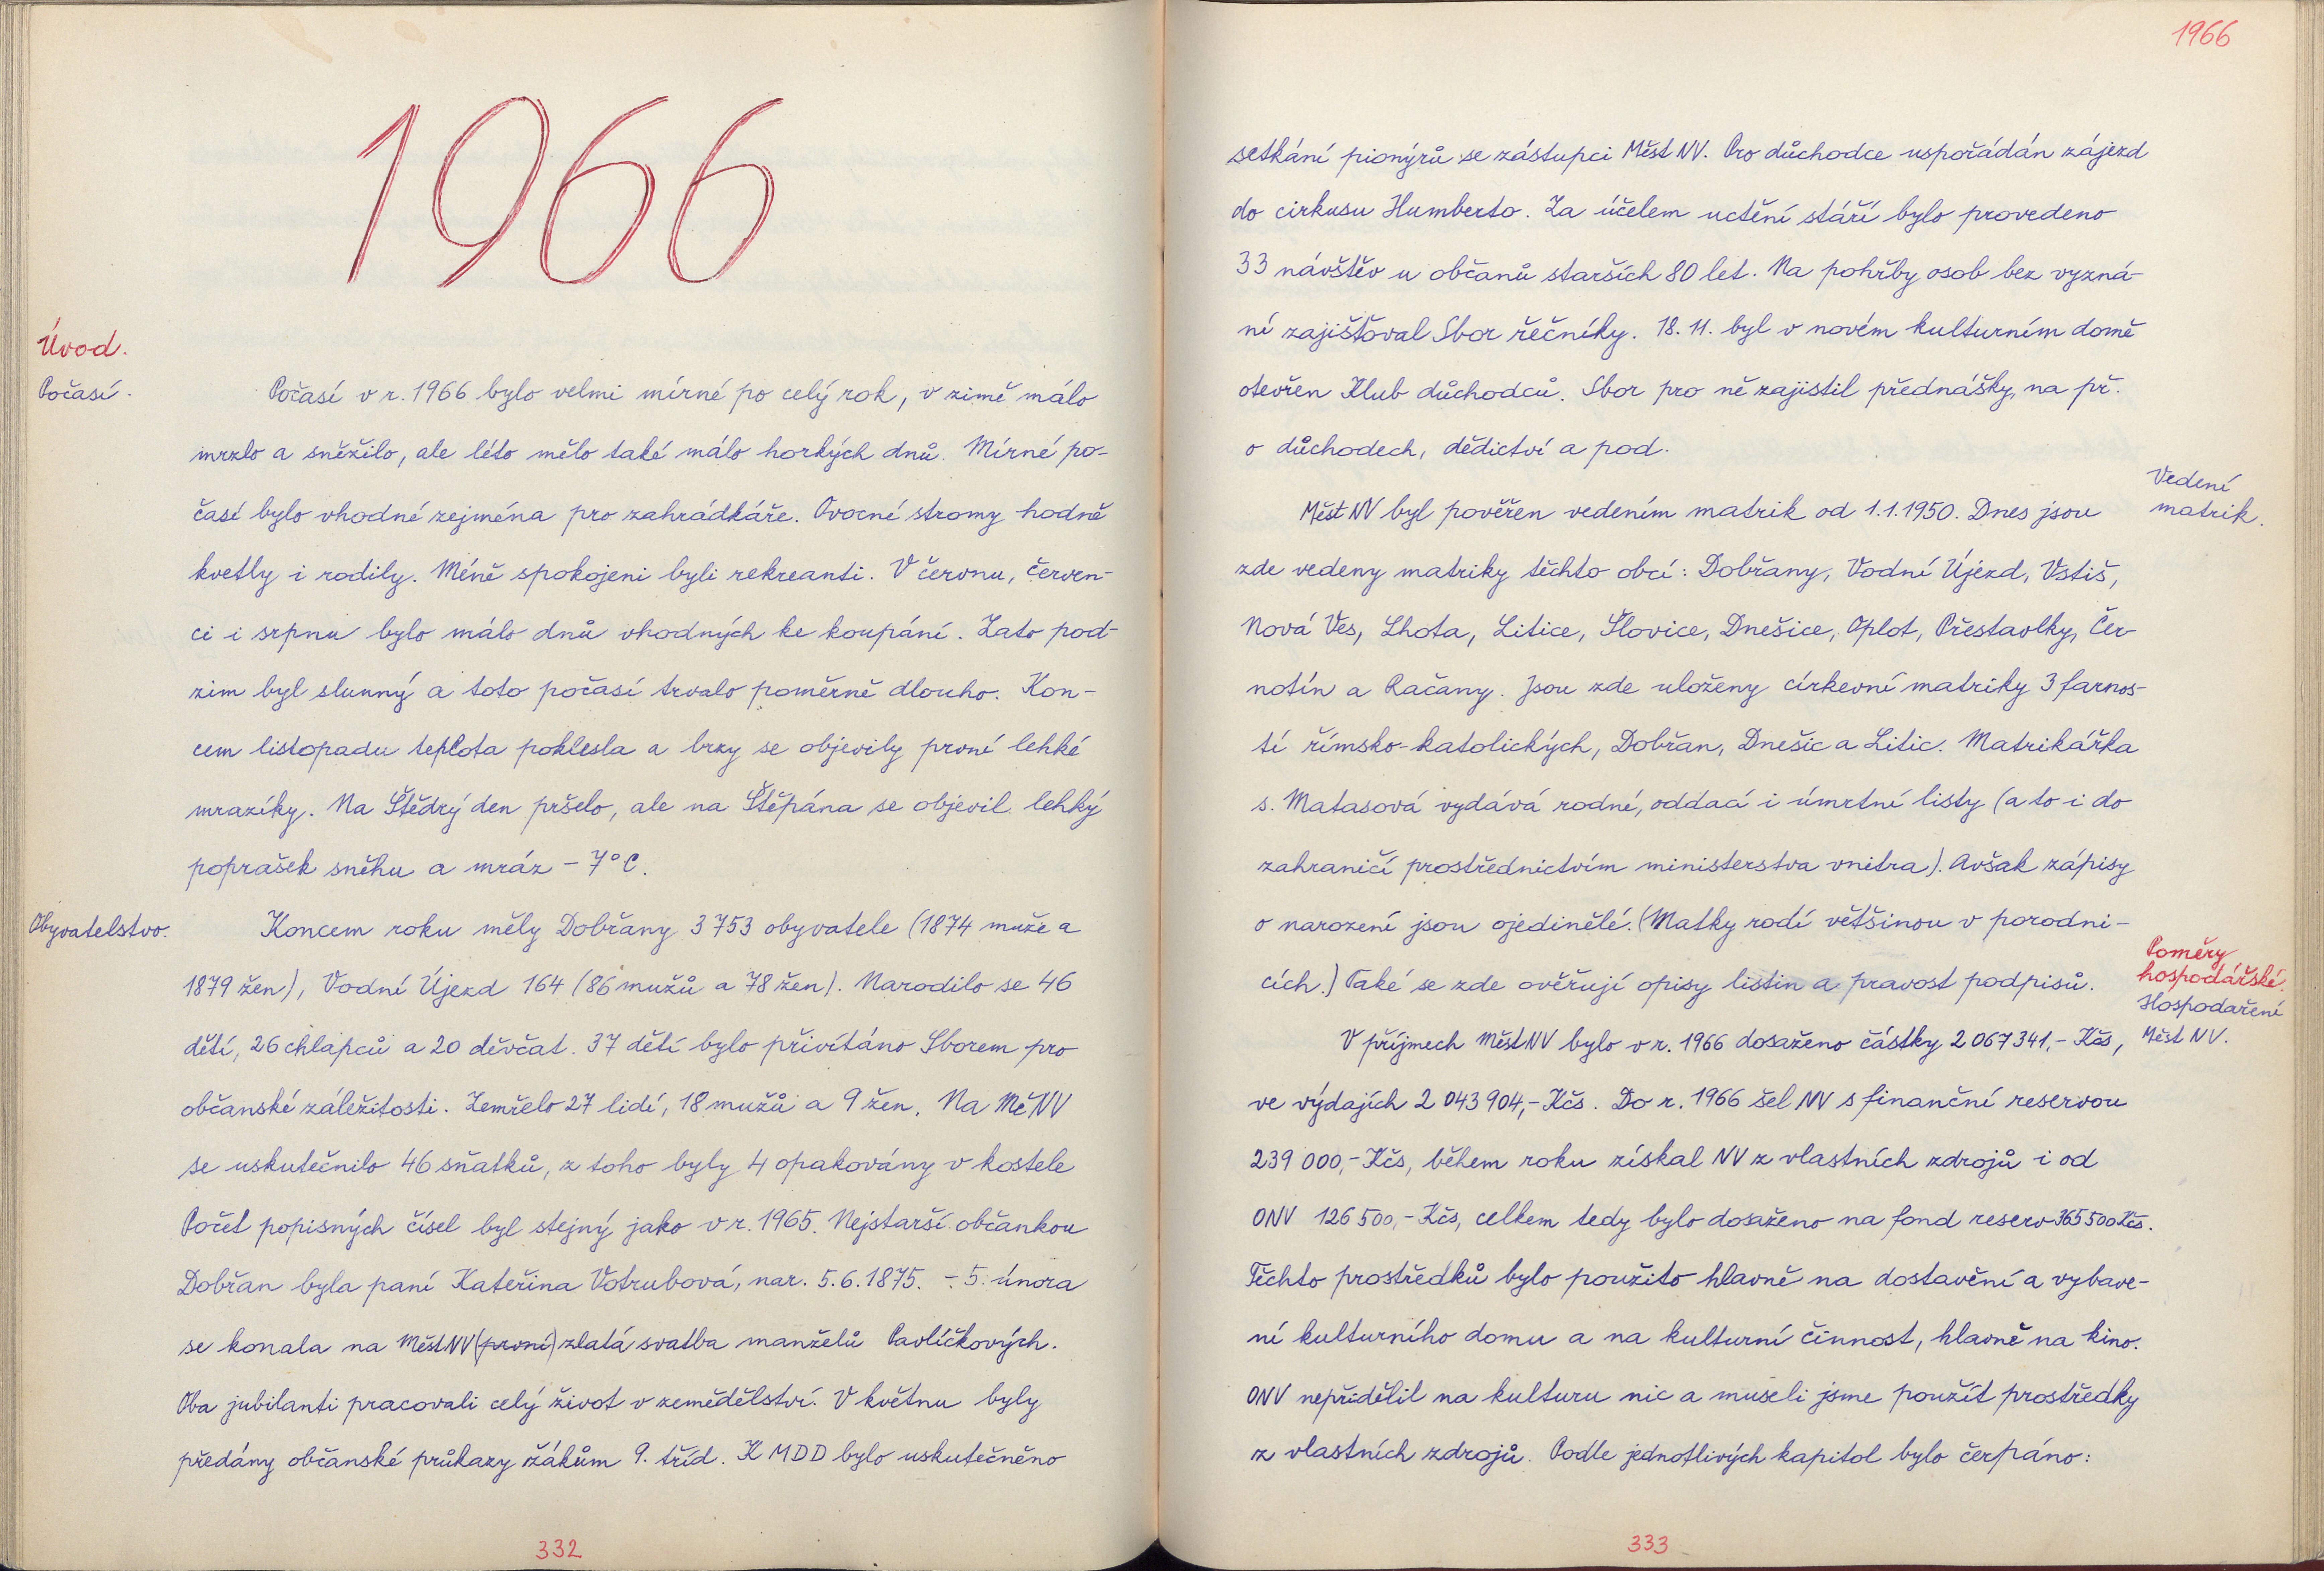 1966
Úvod.
Počasí.
Počasí v r. 1966 bylo velmi mírné po celý rok, v zimě málo
mrzlo a sněžilo, ale léto mělo také málo horkých dnů. Mírné po-
časí bylo vhodné zejména pro zahrádkáře. Ovocné stromy hodně
kvetly i rodily. Méně spokojeni byli rekreanti. V červnu, červen-
ci i srpnu bylo málo dnů vhodných ke koupání. Zato pod-
zim byl slunný a toto počasí trvalo poměrně dlouho. Kon-
cem listopadu teplota poklesla a brzy se objevily první lehké
mrazíky. Na Štědrý den pršelo, ale na Štěpána se objevil lehký
poprašek sněhu a mráz - 7°C.
Obyvatelstvo.
Koncem roku měly Dobřany 3 753 obyvatele (1874 muže a
1879 žen), Vodní Újezd 164 (86 mužů a 78 žen). Narodilo se 46
dětí, 26 chlapců a 20 děvčat. 37 dětí bylo přivítáno Sborem pro
občanské záležitosti. Zemřelo 27 lidí, 18 mužů a 9 žen. Na MěNV
se uskutečnilo 46 sňatků, z toho byly 4 opakovány v kostele
Počet popisných čísel byl stejný jako v r. 1965. Nejstarší občankou
Dobřan byla paní Kateřina Votrubová, nar. 5. 6. 1875. - 5. února
se konala na MěstNV (první) zlatá svatba manželů Pavlíčkových.
Oba jubilanti pracovali celý život v zemědělství. V květnu byly
předány občanské průkazy žákům 9. tříd. K MDD bylo uskutečněno
332
1966
setkání pionýrů se zástupci Měst NV. Pro důchodce uspořádán zájezd
do cirkusu Humberto. Za účelem uctění stáří bylo provedeno
33 návštěv u občanů starších 80 let. Na pohřby osob bez vyzná-
ní zajišťoval Sbor řečníky. 18. 11. byl v novém kulturním domě
otevřen Klub důchodců. Sbor pro ně zajistil přednášky, na př.
o důchodech, dědictví a pod.
Vedení
matrik.
Měst NV byl pověřen vedením matrik od 1. 1. 1950. Dnes jsou
zde vedeny matriky těchto obcí: Dobřany, Vodní Újezd, Vstiš,
Nová Ves, Lhota, Litice, Šlovice, Dnešice, Oplot, Přestavlky, Čer-
notín a Račany. Jsou zde uloženy církevní matriky 3 farnos-
tí římsko-katolických, Dobřan, Dnešic a Litic. Matrikářka
s. Matasová vydává rodné, oddací i úmrtní listy (a to i do
zahraničí prostřednictvím ministerstva vnitra). Avšak zápisy
o narození jsou ojedinělé. (Matky rodí většinou v porodni-
cích.) Také se zde ověřují opisy listin a pravost podpisů.
Poměry
hospodářské.
Hospodaření
Měst NV.
V příjmech MěstNV bylo v r. 1966 dosaženo částky 2 067 341,- Kčs,
ve výdajích 2 043 904,- Kčs. Do r. 1966 šel NV s finanční reservou
239 000,- Kčs, během roku získal NV z vlastních zdrojů i od
ONV 126 500,- Kčs, celkem tedy bylo dosaženo na fond reserv 365 500 Kčs.
Těchto prostředků bylo použito hlavně na dostavění a vybave-
ní kulturního domu a na kulturní činnost, hlavně na kino.
ONV nepřidělil na kulturu nic a museli jsme použít prostředky
z vlastních zdrojů. Podle jednotlivých kapitol bylo čerpáno:
333